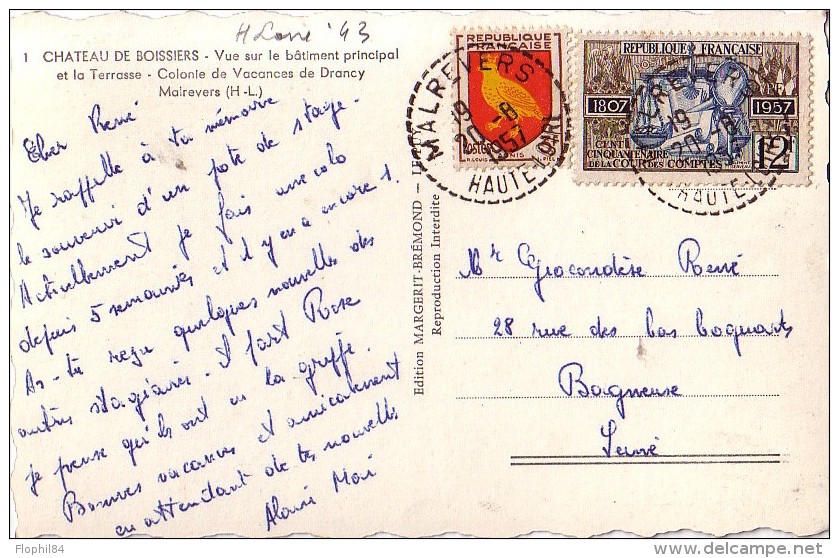 H Loire '43
1 CHATEAU DE BOISSIERS - Vue sur le bâtiment principal
et la Terrasse - Colonie de Vacances de Drancy
Malrevers (H-L.)
Cher René
Je rappelle à ta mémoire
le souvenir d'un pote de stage.
Actuellement je fais une colo
depuis 5 semaines et il y en a encore 1.
As-tu reçu quelques nouvelles des
autres stagiaires. Il fait Rose
je pense qu'ils ont eu la grippe.
Bonnes vacances et amicalement
en attendant de tes nouvelles
Edition MARGERIT-BRÉMOND
Reproduction Interdite
REPUBLIQUE
FRANÇAISE
POSTES
MALREVERS
19 H
20 -8
1957
HAUTE-LOIRE
REPUBLIQUE FRANÇAISE
1807 1957
CENT
CINQUANTENAIRE
DE LA COUR DES COMPTES
12F
19
20 -8
HAUTE-LOIRE
Mr René
28 rue des bas
Bagneux
Seine
Flophil84
delcampe.net